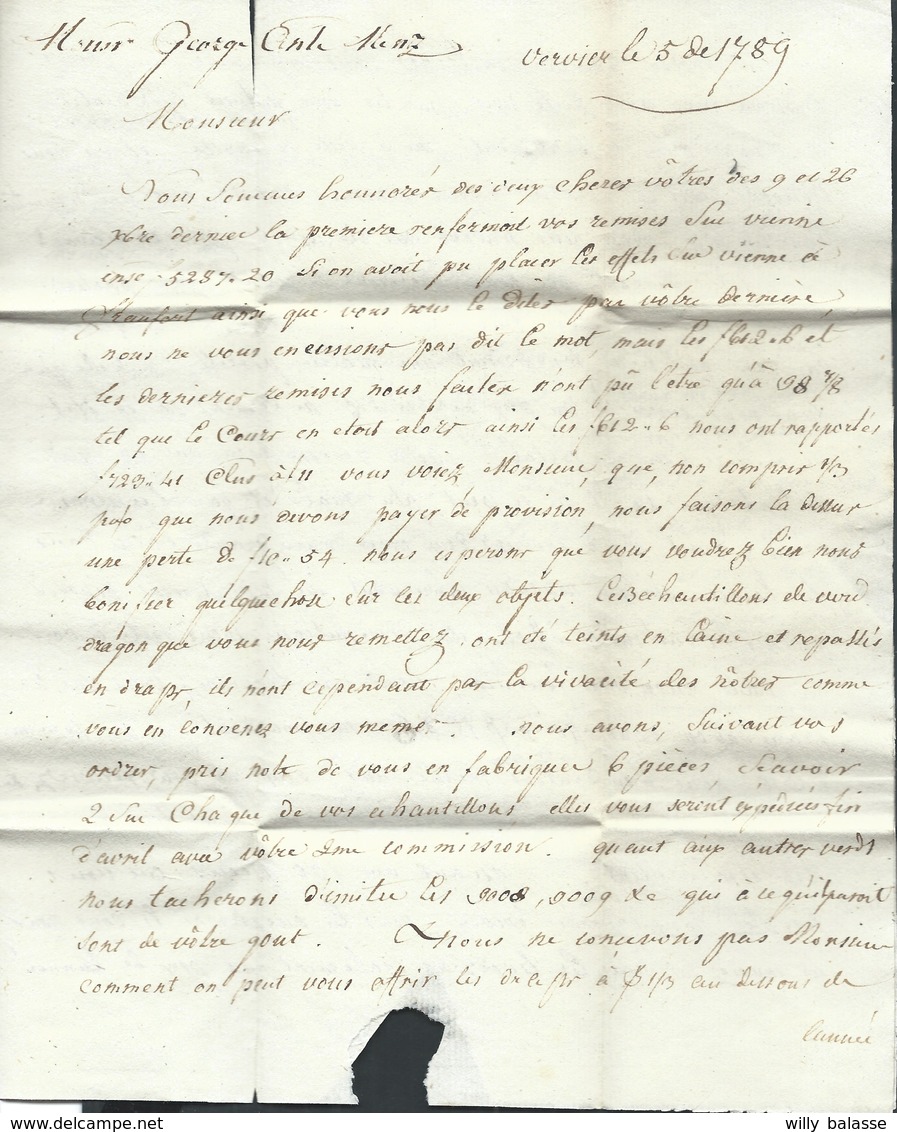 Monsr George Ante Menz
vervier le 5 de 1789
Monsieur
Nous sommes honnorés des deux cheres vôtres des 9 et 26
xbre dernier la premiere renfermoit vos remises sur vienne
ense f 5237.20 si on avoit pu placer les effets sur vienne à
francfort ainsi que vous nous le dites par vôtre derniere
nous ne vous en eussions pas dit le mot, mais les f612..6 et
les dernieres remises nous faites n'ont pû l'être qu'à 98 7/8
tel que le cours en etoit alors ainsi les f612..6 nous ont rapportés
f 723.. 41 vous voiez Monsieur, que, non compris 1/3
que nous devons payer de provision, nous faisons la dessus
une perte de f10.. 54. nous esperons que vous voudrez bien nous
bonifier quelque chose sur les deux objets. les 3 échantillons de verd
dragon que vous nous remettez ont été teints en laine et repassés
en draps, ils n'ont cependant pas la vivacité des nôtres comme
vous en convenez vous meme. nous avons, suivant vos
ordres, pris note de vous en fabriquer 6 pièces, scavoir
2 sur chaque de vos echantillons elles vous seront expediées fin
d'avril avec vôtre 2me commission. quant aux autres verds
nous tacherons d'imiter les 9008, 9009 &c qui à ce qu'il paroit
sont de vôtre gout. Nous ne concevons pas Monsieur
comment on peut vous offrir les draps à 1/3 au dessous de
l'année
willy balasse